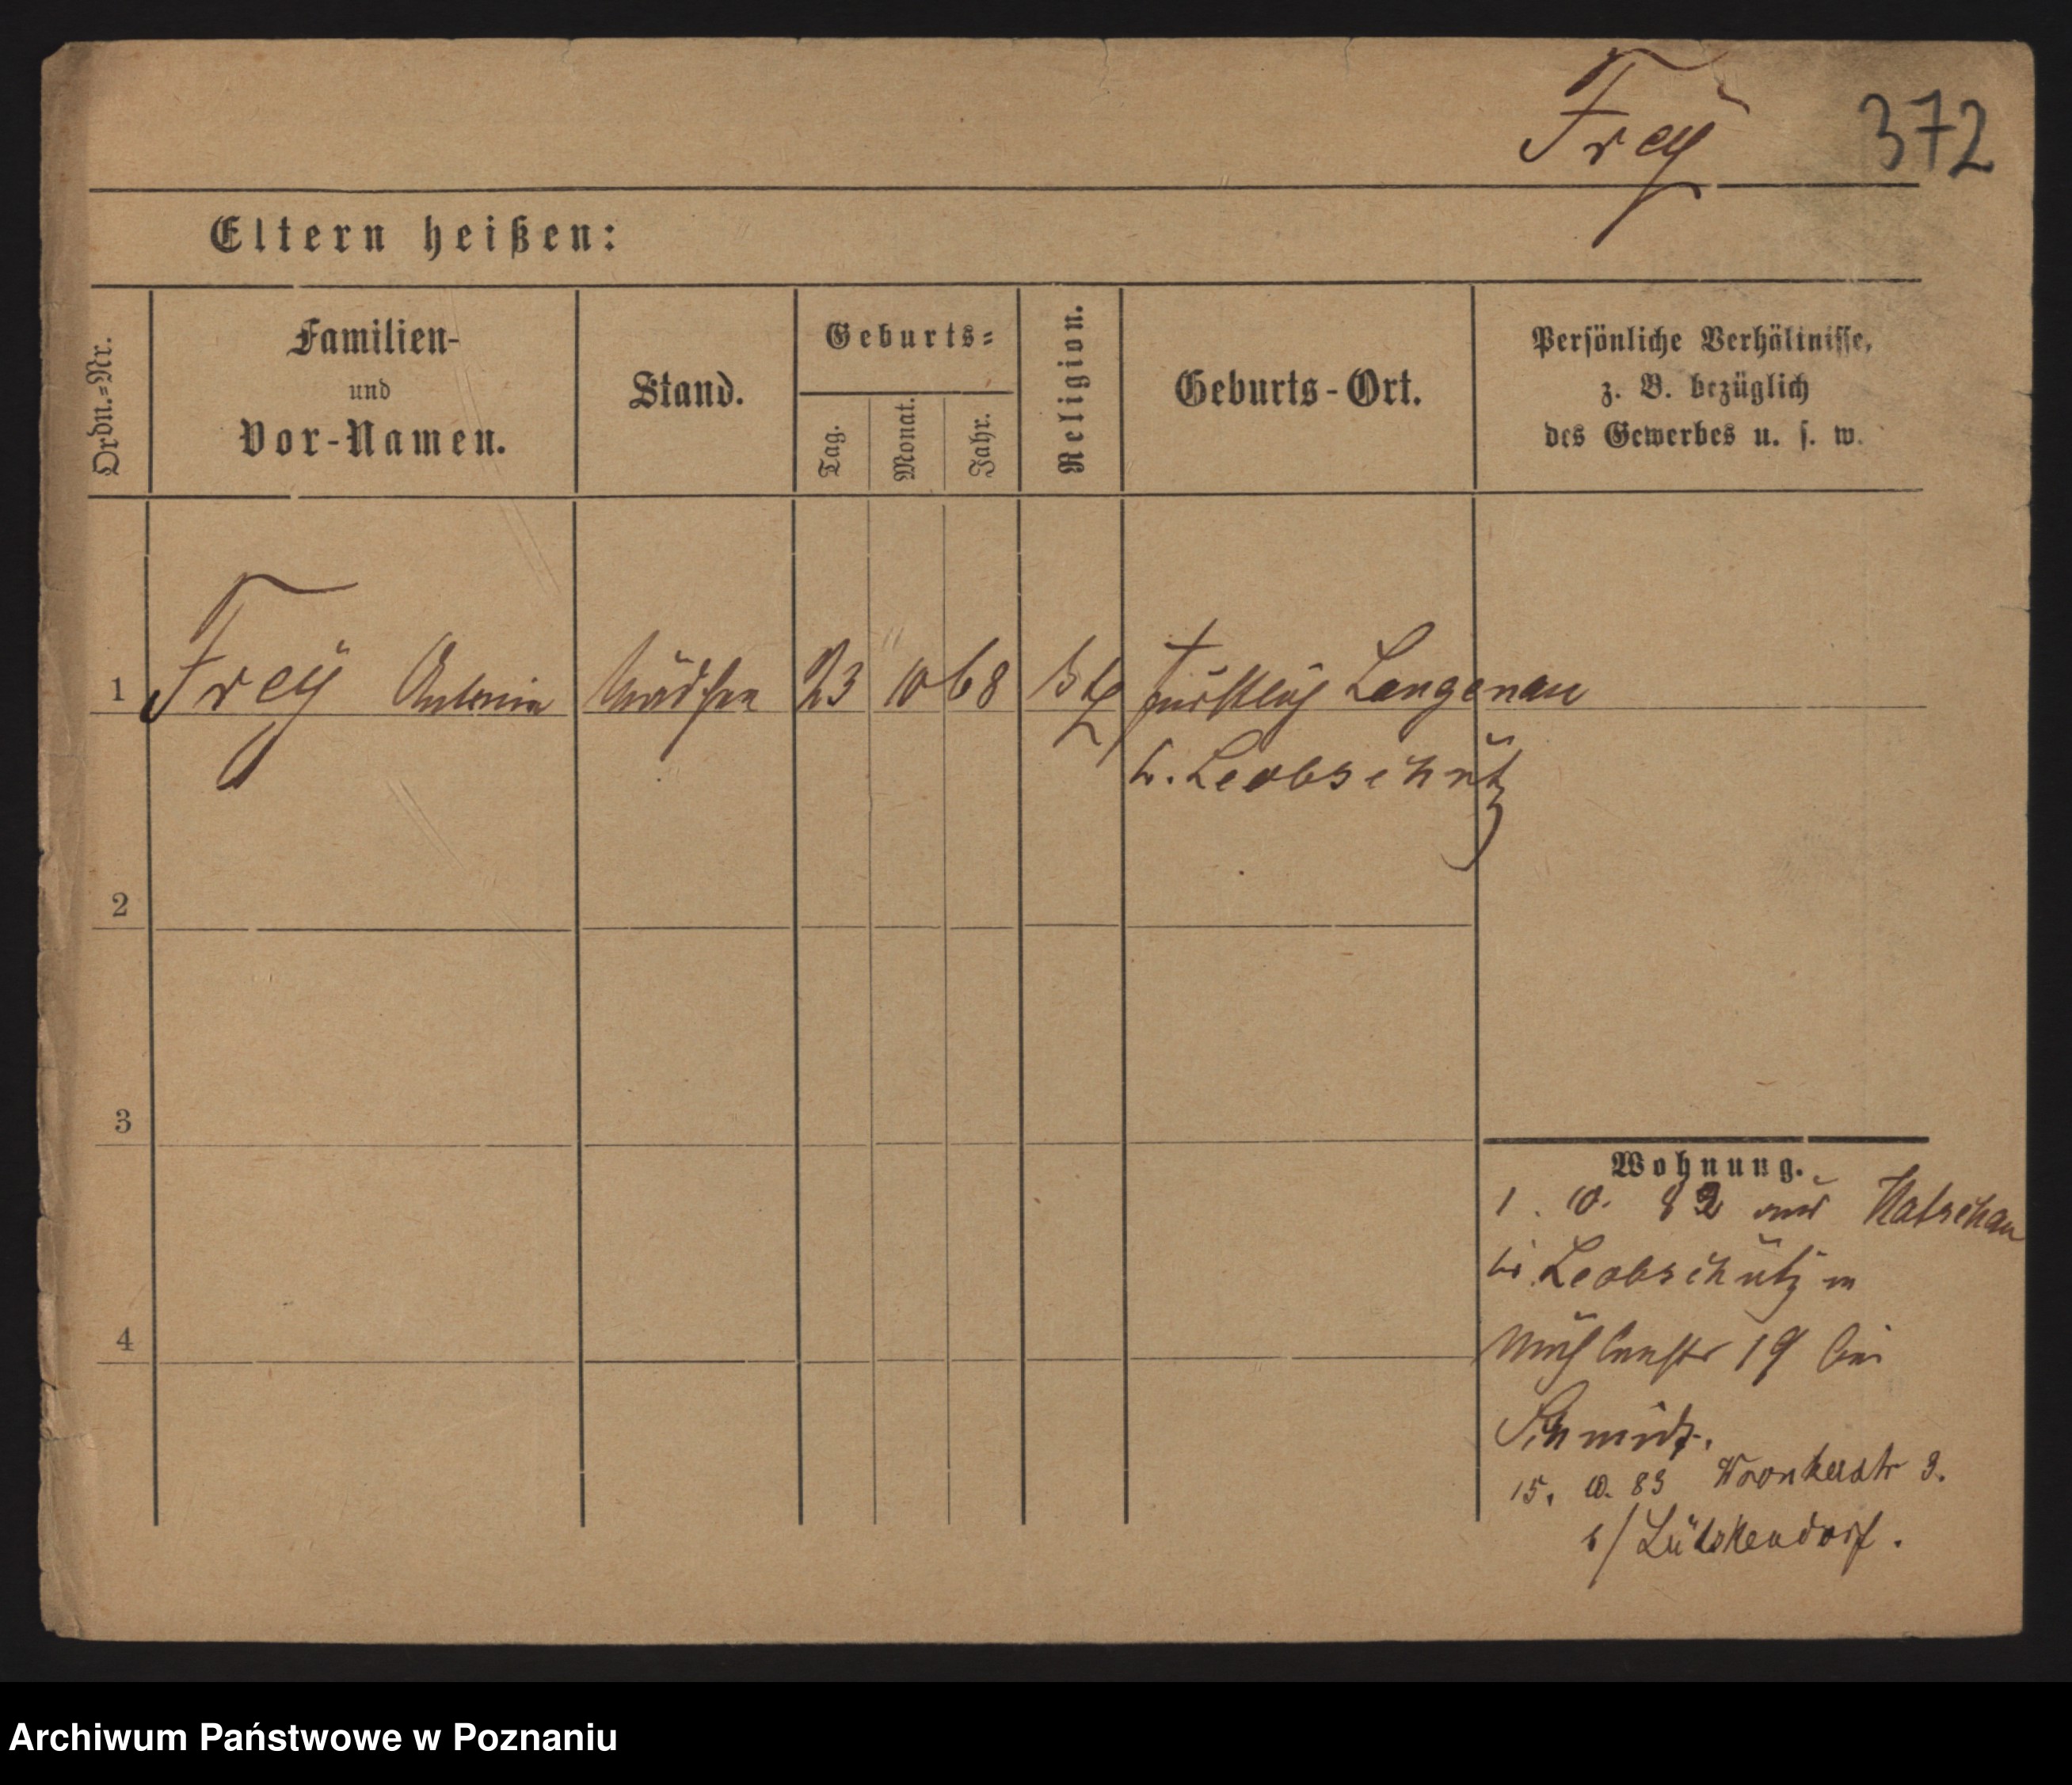 Frey 372
Eltern heißen:
Ordn.=Nr.
Familien-
und
Vor-Namen.
Stand.
Geburts=
Tag.
Monat.
Jahr.
Religion.
Geburts-Ort.
Persönliche Verhältnisse,
z. B. bezüglich
des Gewerbes u. s. w.
1 Frey Antonia Mädchen 23 10 68 Langenau
b. Leobschütz
2
3
4
Wohnung.
1. 10. 82 aus Katschau
bei Leobschütz in
Mühlenstr 19 bei
Schmidt.
15. 10. 83 Wronkerstr 3.
b/ Lütskendorf.
Archiwum Państwowe w Poznaniu